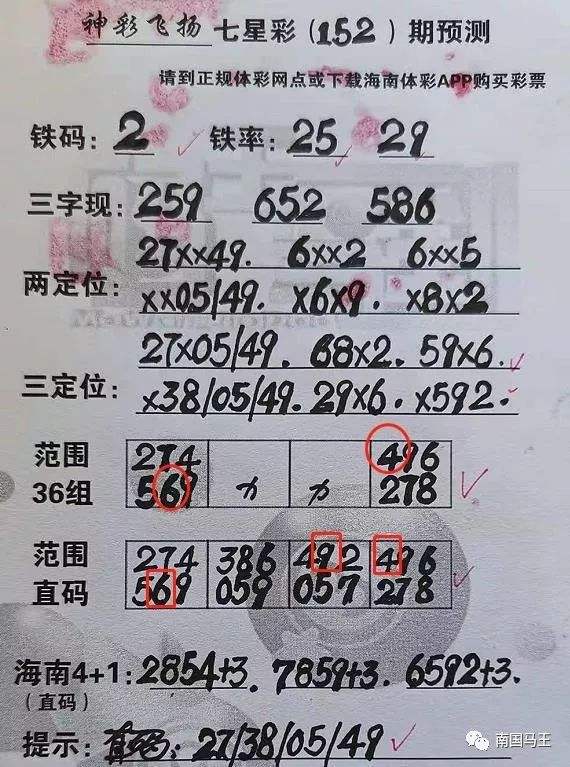 神彩飞扬 七星彩(152)期预测
请到正规体彩网点或下载海南体彩APP购买彩票
铁码: 2 铁率: 25 29
三字现: 259 652 586
27xx49. 6xx2 6xx5
两定位: xx05/49. x6x9. x8x2
27x05/49. 68x2. 59x6.
三定位: x38/05/49. 29x6. x592.
范围 274 496
36组 569 x x 278
范围 274 386 492 496
直码 569 059 057 278
海南4+1: 2854+3. 7859+3. 6592+3.
(直码)
提示: 直码: 27/38/05/49
南国马王